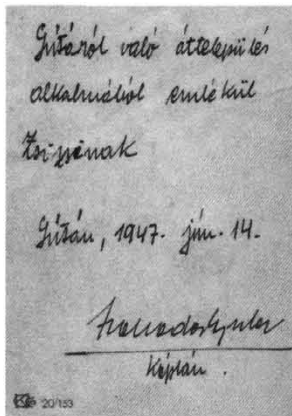 Gútáról való áttelepülés
alkalmából emlékül
Zsizsinak
Gútán, 1947. jún. 14.
káplán.
20/153